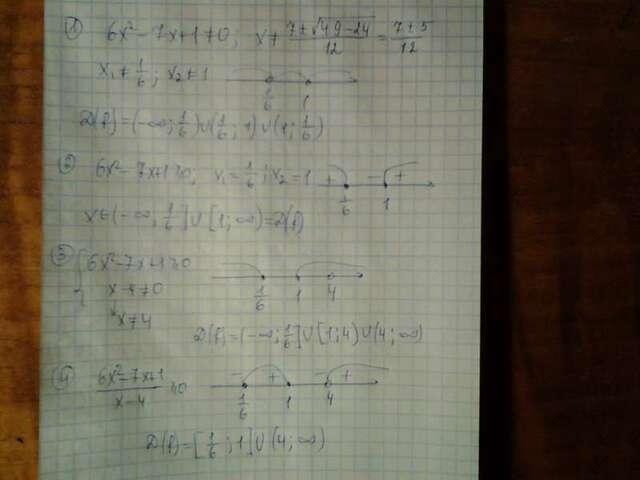 ① 6x² - 7x + 1 ≠ 0; x ≠ (7 ± √(49 - 24))/12 = (7 ± 5)/12
x₁ ≠ 1/6; x₂ ≠ 1
1/6 1
D(f) = (-∞; 1/6) ∪ (1/6; 1) ∪ (1; 1/6)
② 6x² - 7x + 1 ≥ 0; x₁ = 1/6; x₂ = 1 + - +
1/6 1
x ∈ (-∞; 1/6] ∪ [1; ∞) = D(f)
③ { 6x² - 7x + 1 ≥ 0
x - 4 ≠ 0
x ≠ 4
1/6 1 4
D(f) = (-∞; 1/6] ∪ [1; 4) ∪ (4; ∞)
④ (6x² - 7x + 1)/(x - 4) ≥ 0 - + - +
1/6 1 4
D(f) = [1/6; 1] ∪ (4; ∞)